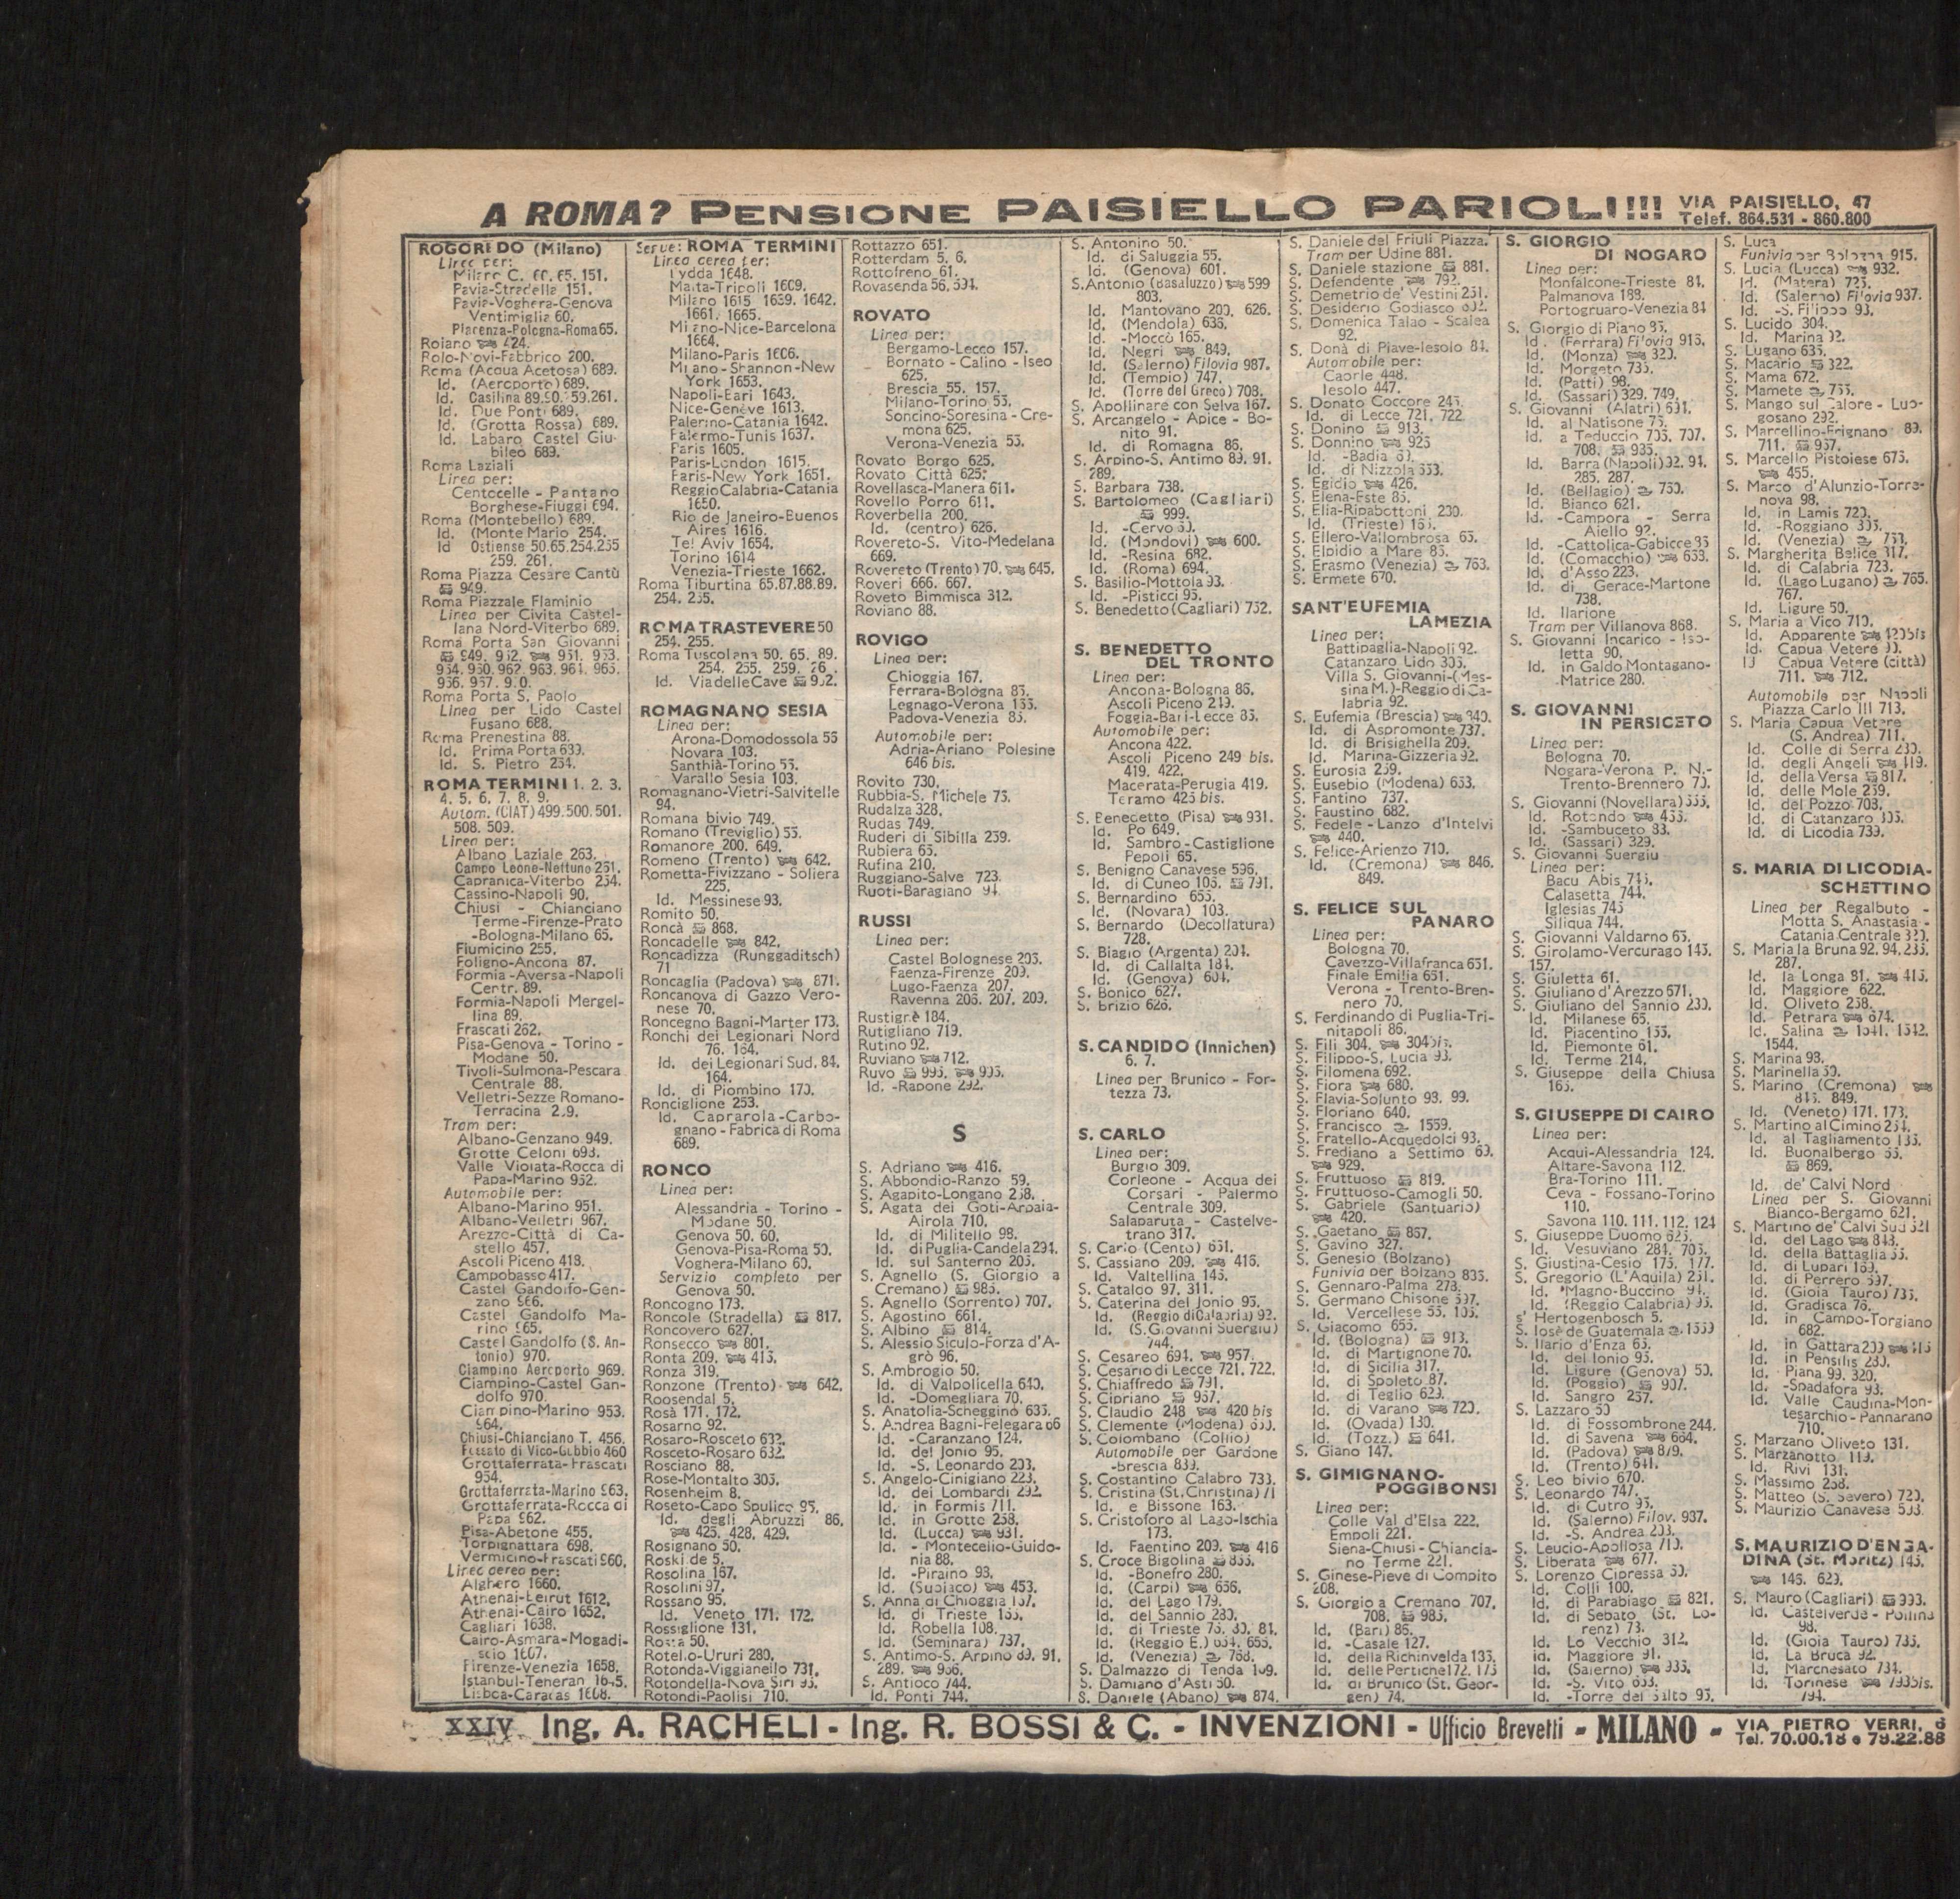 A ROMA? PENSIONE PAISIELLO PARIOLI!!! VIA PAISIELLO, 47
Telef. 864.531 - 860.800
ROGOREDO (Milano)
Linee per:
Milano C. 60, 65, 151.
Pavia-Stradella 151.
Pavia-Voghera-Genova
Ventimiglia 60.
Piacenza-Bologna-Roma 65.
Roiano 424.
Rolo-Novi-Fabbrico 200.
Roma (Acqua Acetosa) 689.
Id. (Aeroporto) 689.
Id. Casilina 89.90. 59.261.
Id. Due Ponti 689.
Id. (Grotta Rossa) 689.
Id. Labaro Castel Giu-
bileo 689.
Roma Laziali
Linea per:
Centocelle - Pantano
Borghese-Fiuggi 694.
Roma (Montebello) 689.
Id. (Monte Mario 254.
Id Ostiense 50.65.254.255
259. 261.
Roma Piazza Cesare Cantù
949.
Roma Piazzale Flaminio
Linea per Civita Castel-
lana Nord-Viterbo 689.
Roma Porta San Giovanni
949. 952. 951. 953.
954. 960. 962. 963. 964. 965.
966. 967. 970.
Roma Porta S. Paolo
Linea per Lido Castel
Fusano 688.
Roma Prenestina 88.
Id. Prima Porta 689.
Id. S. Pietro 254.
ROMA TERMINI 1. 2. 3.
4. 5. 6. 7. 8. 9.
Autom. (CIAT) 499.500.501.
508. 509.
Linea per:
Albano Laziale 263.
Campo Leone-Nettuno 261.
Capranica-Viterbo 254.
Cassino-Napoli 90.
Chiusi - Chianciano
Terme-Firenze-Prato
-Bologna-Milano 65.
Fiumicino 255.
Foligno-Ancona 87.
Formia-Aversa-Napoli
Centr. 89.
Formia-Napoli Mergel-
lina 89.
Frascati 262.
Pisa-Genova - Torino -
Modane 50.
Tivoli-Sulmona-Pescara
Centrale 88.
Velletri-Sezze Romano-
Terracina 259.
Tram per:
Albano-Genzano 949.
Grotte Celoni 693.
Valle Violata-Rocca di
Papa-Marino 952.
Automobile per:
Albano-Marino 951.
Albano-Velletri 967.
Arezzo-Città di Ca-
stello 457.
Ascoli Piceno 418.
Campobasso 417.
Castel Gandolfo-Gen-
zano 966.
Castel Gandolfo Ma-
rino 965.
Castel Gandolfo (S. An-
tonio) 970.
Ciampino Aeroporto 969.
Ciampino-Castel Gan-
dolfo 970.
Ciampino-Marino 953.
964.
Chiusi-Chianciano T. 456.
Fossato di Vico-Gubbio 460
Grottaferrata-Frascati
954.
Grottaferrata-Marino 963.
Grottaferrata-Rocca di
Papa 962.
Pisa-Abetone 455.
Torpignattara 698.
Vermicino-Frascati 960.
Linee aeree per:
Alghero 1660.
Athenai-Beirut 1612.
Athenai-Cairo 1652.
Cagliari 1638.
Cairo-Asmara-Mogadi-
scio 1607.
Firenze-Venezia 1658.
Istanbul-Teheran 1645.
Lisboa-Caracas 1608.
Serve: ROMA TERMINI
Linea aerea per:
Lydda 1648.
Malta-Tripoli 1609.
Milano 1615. 1639. 1642.
1661. 1665.
Milano-Nice-Barcelona
1664.
Milano-Paris 1606.
Milano-Shannon-New
York 1653.
Napoli-Bari 1643.
Nice-Genève 1613.
Palermo-Catania 1642.
Palermo-Tunis 1637.
Paris 1605.
Paris-London 1615.
Paris-New York 1651.
Reggio Calabria-Catania
1650.
Rio de Janeiro-Buenos
Aires 1616.
Tel Aviv 1654.
Torino 1614
Venezia-Trieste 1662.
Roma Tiburtina 65.87.88.89.
254. 255.
ROMA TRASTEVERE 50
254. 255.
Roma Tuscolana 50. 65. 89.
254. 255. 259.
Id. Via delle Cave 952.
ROMAGNANO SESIA
Linea per:
Arona-Domodossola 55
Novara 103.
Santhià-Torino 55.
Varallo Sesia 103.
Romagnano-Vietri-Salvitelle
94.
Romana bivio 749.
Romano (Treviglio) 55.
Romanore 200. 649.
Romeno (Trento) 642.
Rometta-Fivizzano - Soliera
225.
Id. Messinese 93.
Romito 50.
Roncà 868.
Roncadelle 842.
Roncadizza (Runggaditsch)
71
Roncaglia (Padova) 871.
Roncanova di Gazzo Vero-
nese 70.
Roncegno Bagni-Marter 173.
Ronchi dei Legionari Nord
76. 164.
Id. dei Legionari Sud. 84.
164.
Id. di Piombino 170.
Ronciglione 253.
Id. Caprarola-Carbo-
gnano-Fabrica di Roma
689.
RONCO
Linea per:
Alessandria - Torino -
Modane 50.
Genova 50. 60.
Genova-Pisa-Roma 50.
Voghera-Milano 60.
Servizio completo per
Genova 50.
Roncogno 173.
Roncole (Stradella) 817.
Roncovero 627.
Ronsecco 801.
Ronta 209. 415.
Ronza 319.
Ronzone (Trento) 642.
Roosendal 5.
Rosà 171. 172.
Rosarno 92.
Rosaro-Rosceto 632.
Rosceto-Rosaro 632.
Rosciano 88.
Rose-Montalto 305.
Rosenheim 8.
Roseto-Capo Spulico 95.
Id. degli Abruzzi 86.
425. 428. 429.
Rosignano 50.
Roskilde 5.
Rosolina 167.
Rosolini 97.
Rossano 95.
Id. Veneto 171. 172.
Rossiglione 131.
Rosta 50.
Rotello-Ururi 280.
Rotonda-Viggianello 731.
Rotondella-Nova Siri 95.
Rotondi-Paolisi 710.
Rottazzo 651.
Rotterdam 5. 6.
Rottofreno 61.
Rovasenda 56. 594.
ROVATO
Linea per:
Bergamo-Lecco 157.
Bornato - Calino - Iseo
625.
Brescia 55. 157.
Milano-Torino 55.
Soncino-Soresina - Cre-
mona 625.
Verona-Venezia 55.
Rovato Borgo 625.
Rovato Città 625.
Rovellasca-Manera 611.
Rovello Porro 611.
Roverbella 200.
Id. (centro) 626.
Rovereto-S. Vito-Medelana
669.
Rovereto (Trento) 70. 645.
Roveri 666. 667.
Roveto Bimmisca 312.
Roviano 88.
ROVIGO
Linea per:
Chioggia 167.
Ferrara-Bologna 85.
Legnago-Verona 165.
Padova-Venezia 85.
Automobile per:
Adria-Ariano Polesine
646 bis.
Rovito 730.
Rubbia-S. Michele 75.
Rudalza 328.
Rudas 749.
Ruderi di Sibilla 259.
Rubiera 65.
Rufina 210.
Ruggiano-Salve 723.
Ruoti-Baragiano 94
RUSSI
Linea per:
Castel Bolognese 205.
Faenza-Firenze 209.
Lugo-Faenza 207.
Ravenna 206. 207. 209.
Rustigrè 184.
Rutigliano 719.
Rutino 92.
Ruviano 712.
Ruvo 995. 995.
Id. -Rapone 292.
S
S. Adriano 416.
S. Abbondio-Ranzo 59.
S. Agapito-Longano 258.
S. Agata dei Goti-Arpaia-
Airola 710.
Id. di Militello 98.
Id. di Puglia-Candela 294.
Id. sul Santerno 205.
S. Agnello (S. Giorgio a
Cremano) 985.
S. Agnello (Sorrento) 707.
S. Agostino 661.
S. Albino 814.
S. Alessio Siculo-Forza d'A-
grò 96.
S. Ambrogio 50.
Id. di Valpolicella 640.
Id. -Domegliara 70.
S. Anatolia-Scheggino 635.
S. Andrea Bagni-Felegara 66
Id. -Caranzano 124.
Id. del Jonio 95.
Id. -S. Leonardo 203.
S. Angelo-Cinigiano 223.
Id. dei Lombardi 292.
Id. in Formis 711.
Id. in Grotte 258.
Id. (Lucca) 931.
Id. - Montecelio-Guido-
nia 88.
Id. -Piraino 93.
Id. (Subiaco) 453.
S. Anna di Chioggia 167.
Id. di Trieste 165.
Id. Robella 108.
Id. (Seminara) 737.
S. Antimo-S. Arpino 89. 91.
289. 956.
S. Antioco 744.
Id. Ponti 744.
S. Antonino 50.
Id. di Saluggia 55.
Id. (Genova) 601.
S. Antonio (Basaluzzo) 599
803.
Id. Mantovano 200. 626.
Id. (Mendola) 636.
Id. -Moccò 165.
Id. Negri 849.
Id. (Salerno) Filovia 987.
Id. (Tempio) 747.
Id. (Torre del Greco) 708.
S. Apollinare con Selva 167.
S. Arcangelo - Apice - Bo-
nito 91.
Id. di Romagna 86.
S. Arpino-S. Antimo 89. 91.
289.
S. Barbara 738.
S. Bartolomeo (Cagliari)
999.
Id. -Cervo 50.
Id. (Mondovì) 600.
Id. -Resina 682.
Id. (Roma) 694.
S. Basilio-Mottola 93.
Id. -Pisticci 95.
S. Benedetto (Cagliari) 752.
S. BENEDETTO
DEL TRONTO
Linea per:
Ancona-Bologna 86.
Ascoli Piceno 249.
Foggia-Bari-Lecce 86.
Automobile per:
Ancona 422.
Ascoli Piceno 249 bis.
419. 422.
Macerata-Perugia 419.
Teramo 425 bis.
S. Benedetto (Pisa) 931.
Id. Po 649.
Id. Sambro-Castiglione
Pepoli 65.
S. Benigno Canavese 596.
Id. di Cuneo 106. 791.
S. Bernardino 655.
Id. (Novara) 103.
S. Bernardo (Decollatura)
728.
S. Biagio (Argenta) 204.
Id. di Callalta 184.
Id. (Genova) 604.
S. Bonico 627.
S. Brizio 626.
S. CANDIDO (Innichen)
6. 7.
Linea per Brunico - For-
tezza 73.
S. CARLO
Linea per:
Burgio 309.
Corleone - Acqua dei
Corsari - Palermo
Centrale 309.
Salaparuta - Castelve-
trano 317.
S. Carlo (Cento) 661.
S. Cassiano 209. 416.
Id. Valtellina 145.
S. Cataldo 97. 311.
S. Caterina del Jonio 95.
Id. (Reggio di Calabria) 92.
Id. (S. Giovanni Suergiu)
744.
S. Cesareo 694. 957.
S. Cesario di Lecce 721. 722.
S. Chiaffredo 791.
S. Cipriano 957.
S. Claudio 248 420 bis
S. Clemente (Modena) 653.
S. Colombano (Collio)
Automobile per Gardone
-brescia 839.
S. Costantino Calabro 733.
S. Cristina (St. Christina) 71
Id. e Bissone 163.
S. Cristoforo al Lago-Ischia
173.
Id. Faentino 209. 416
S. Croce Bigolina 855.
Id. -Bonefro 280.
Id. (Carpi) 656.
Id. del Lago 179.
Id. del Sannio 280.
Id. di Trieste 76. 80. 84.
Id. (Reggio E.) 654. 655.
Id. (Venezia) 768.
S. Dalmazzo di Tenda 109.
S. Damiano d'Asti 50.
S. Daniele (Abano) 874.
S. Daniele del Friuli Piazza.
Tram per Udine 881.
S. Daniele stazione 881.
S. Defendente 792.
S. Demetrio de' Vestini 251.
S. Desiderio Godiasco 602.
S. Domenica Talao - Scalea
92.
S. Donà di Piave-Iesolo 84.
Automobile per:
Caorle 448.
Iesolo 447.
S. Donato Coccore 245.
Id. di Lecce 721. 722.
S. Donino 913.
S. Donnino 925
Id. -Badia 60.
Id. di Nizzola 653.
S. Egidio 426.
S. Elena-Este 85.
S. Elia-Ripabottoni 280.
Id. (Trieste) 165.
S. Ellero-Vallombrosa 65.
S. Elpidio a Mare 86.
S. Erasmo (Venezia) 763.
S. Ermete 670.
SANT'EUFEMIA
LAMEZIA
Linea per:
Battipaglia-Napoli 92.
Catanzaro Lido 305.
Villa S. Giovanni-(Mes-
sina M.)-Reggio di Ca-
labria 92.
S. Eufemia (Brescia) 840.
Id. di Aspromonte 737.
Id. di Brisighella 209.
Id. Marina-Gizzeria 92.
S. Eurosia 259.
S. Eusebio (Modena) 653.
S. Fantino 737.
S. Faustino 682.
S. Fedele - Lanzo d'Intelvi
440.
S. Felice-Arienzo 710.
Id. (Cremona) 846.
849.
S. FELICE SUL
PANARO
Linea per:
Bologna 70.
Cavezzo-Villafranca 651.
Finale Emilia 651.
Verona - Trento-Bren-
nero 70.
S. Ferdinando di Puglia-Tri-
nitapoli 86.
S. Fili 304. 304 bis.
S. Filippo-S. Lucia 93.
S. Filomena 692.
S. Fiora 680.
S. Flavia-Solunto 93. 99.
S. Floriano 640.
S. Francisco 1559.
S. Fratello-Acquedolci 93.
S. Frediano a Settimo 69.
929.
S. Fruttuoso 819.
S. Fruttuoso-Camogli 50.
S. Gabriele (Santuario)
420.
S. Gaetano 857.
S. Gavino 327.
S. Genesio (Bolzano)
Funivia per Bolzano 835.
S. Gennaro-Palma 278.
S. Germano Chisone 597.
Id. Vercellese 55. 105.
S. Giacomo 655.
Id. (Bologna) 913.
Id. di Martignone 70.
Id. di Sicilia 317.
Id. di Spoleto 87.
Id. di Teglio 629.
Id. di Varano 720.
Id. (Ovada) 130.
Id. (Tozz.) 641.
S. Giano 147.
S. GIMIGNANO-
POGGIBONSI
Linea per:
Colle Val d'Elsa 222.
Empoli 221.
Siena-Chiusi-Chiancia-
no Terme 221.
S. Ginese-Pieve di Compito
208.
S. Giorgio a Cremano 707.
708. 985.
Id. (Bari) 86.
Id. -Casale 127.
Id. della Richinvelda 185.
Id. delle Pertiche 172. 173
Id. di Brunico (St. Geor-
gen) 74.
S. GIORGIO
DI NOGARO
Linea per:
Monfalcone-Trieste 84.
Palmanova 188.
Portogruaro-Venezia 84
S. Giorgio di Piano 85.
Id. (Ferrara) Filovia 915.
Id. (Monza) 320.
Id. Morgeto 735.
Id. (Patti) 98.
Id. (Sassari) 329. 749.
S. Giovanni (Alatri) 691.
Id. al Natisone 75.
Id. a Teduccio 706. 707.
708. 985.
Id. Barra (Napoli) 92. 94.
285. 287.
Id. (Bellagio) 750.
Id. Bianco 621.
Id. -Campora - Serra
Aiello 92.
Id. -Cattolica-Gabicce 86
Id. (Comacchio) 663.
Id. d'Asso 223.
Id. di Gerace-Martone
738.
Id. Ilarione
Tram per Villanova 868.
S. Giovanni Incarico - Iso-
letta 90.
Id. in Galdo Montagano-
-Matrice 280.
S. GIOVANNI
IN PERSICETO
Linea per:
Bologna 70.
Nogara-Verona P. N.-
Trento-Brennero 70.
S. Giovanni (Novellara) 655.
Id. Rotondo 435.
Id. -Sambuceto 83.
Id. (Sassari) 329.
S. Giovanni Suergiu
Linea per:
Bacu Abis 745.
Calasetta 744.
Iglesias 745
Siliqua 744.
S. Giovanni Valdarno 65.
S. Girolamo-Vercurago 145.
157.
S. Giuletta 61.
S. Giuliano d'Arezzo 671.
S. Giuliano del Sannio 280.
Id. Milanese 65.
Id. Piacentino 165.
Id. Piemonte 61.
Id. Terme 214.
S. Giuseppe della Chiusa
165.
S. GIUSEPPE DI CAIRO
Linea per:
Acqui-Alessandria 124.
Altare-Savona 112.
Bra-Torino 111.
Ceva - Fossano-Torino
110.
Savona 110. 111. 112. 124
S. Giuseppe Duomo 625.
Id. Vesuviano 284. 705.
S. Giustina-Cesio 175. 177.
S. Gregorio (L'Aquila) 251.
Id. Magno-Buccino 94.
Id. (Reggio Calabria) 95.
s' Hertogenbosch 5.
S. Iosè de Guatemala 1559
S. Ilario d'Enza 65.
Id. del Ionio 95.
Id. Ligure (Genova) 50.
Id. (Poggio) 907.
Id. Sangro 257.
S. Lazzaro 50
Id. di Fossombrone 244.
Id. di Savena 664.
Id. (Padova) 879.
Id. (Trento) 641.
S. Leo bivio 670.
S. Leonardo 747.
Id. di Cutro 95.
Id. (Salerno) Filov. 937.
Id. -S. Andrea 203.
S. Leucio-Apollosa 710.
S. Liberata 677.
S. Lorenzo Cipressa 50.
Id. Colli 100.
Id. di Parabiago 821.
Id. di Sebato (St. Lo-
renz) 73.
Id. Lo Vecchio 312.
Id. Maggiore 91.
Id. (Salerno) 935.
Id. -S. Vito 653.
Id. -Torre del Salto 95.
S. Luca
Funivia per Bologna 915.
S. Lucia (Lucca) 932.
Id. (Matera) 725.
Id. (Salerno) Filovia 937.
Id. -S. Filippo 93.
S. Lucido 304.
Id. Marina 92.
S. Lugano 635.
S. Macario 322.
S. Mama 672.
S. Mamete 755.
S. Mango sul Calore - Luo-
gosano 292.
S. Marcellino-Frignano 89.
711. 957.
S. Marcello Pistoiese 675.
455.
S. Marco d'Alunzio-Torre-
nova 98.
Id. in Lamis 720.
Id. -Roggiano 305.
Id. (Venezia) 753.
S. Margherita Belice 317.
Id. di Calabria 723.
Id. (Lago Lugano) 765.
767.
Id. Ligure 50.
S. Maria a Vico 710.
Id. Apparente 420 bis
Id. Capua Vetere 90.
Id Capua Vetere (città)
711. 712.
Automobile per Napoli
Piazza Carlo III 713.
S. Maria Capua Vetere
(S. Andrea) 711.
Id. Colle di Serra 230.
Id. degli Angeli 419.
Id. della Versa 817.
Id. delle Mole 259.
Id. del Pozzo 708.
Id. di Catanzaro 305.
Id. di Licodia 739.
S. MARIA DI LICODIA-
SCHETTINO
Linea per Regalbuto -
Motta S. Anastasia -
Catania Centrale 320.
S. Maria la Bruna 92. 94. 285.
287.
Id. la Longa 81. 415.
Id. Maggiore 622.
Id. Oliveto 258.
Id. Petrara 674.
Id. Salina 1541. 1542.
1544.
S. Marina 98.
S. Marinella 50.
S. Marino (Cremona)
845. 849.
Id. (Veneto) 171. 173.
S. Martino al Cimino 254.
Id. al Tagliamento 185.
Id. Buonalbergo 55.
869.
Id. de' Calvi Nord
Linea per S. Giovanni
Bianco-Bergamo 621.
S. Martino de' Calvi Sud 621
Id. del Lago 848.
Id. della Battaglia 55.
Id. di Lupari 169.
Id. di Perrero 597.
Id. (Gioia Tauro) 735.
Id. Gradisca 76.
Id. in Campo-Torgiano
682.
Id. in Gattara 209 415
Id. in Pensilis 280.
Id. Piana 99. 320.
Id. -Spadafora 93.
Id. Valle Caudina-Mon-
tesarchio - Pannarano
710.
S. Marzano Oliveto 131.
S. Marzanotto 119.
Id. Rivi 131.
S. Massimo 258.
S. Matteo (S. Severo) 720.
S. Maurizio Canavese 593.
S. MAURIZIO D'ENGA-
DINA (St. Moritz) 145.
146. 629.
S. Mauro (Cagliari) 999.
Id. Castelverde - Pollina
98.
Id. (Gioia Tauro) 735.
Id. La Bruca 92.
Id. Marchesato 734.
Id. Torinese 793 bis.
794.
XXIV Ing. A. RACHELI - Ing. R. BOSSI & C. - INVENZIONI - Ufficio Brevetti - MILANO - VIA PIETRO VERRI, 6
Tel. 70.00.18 e 79.22.88